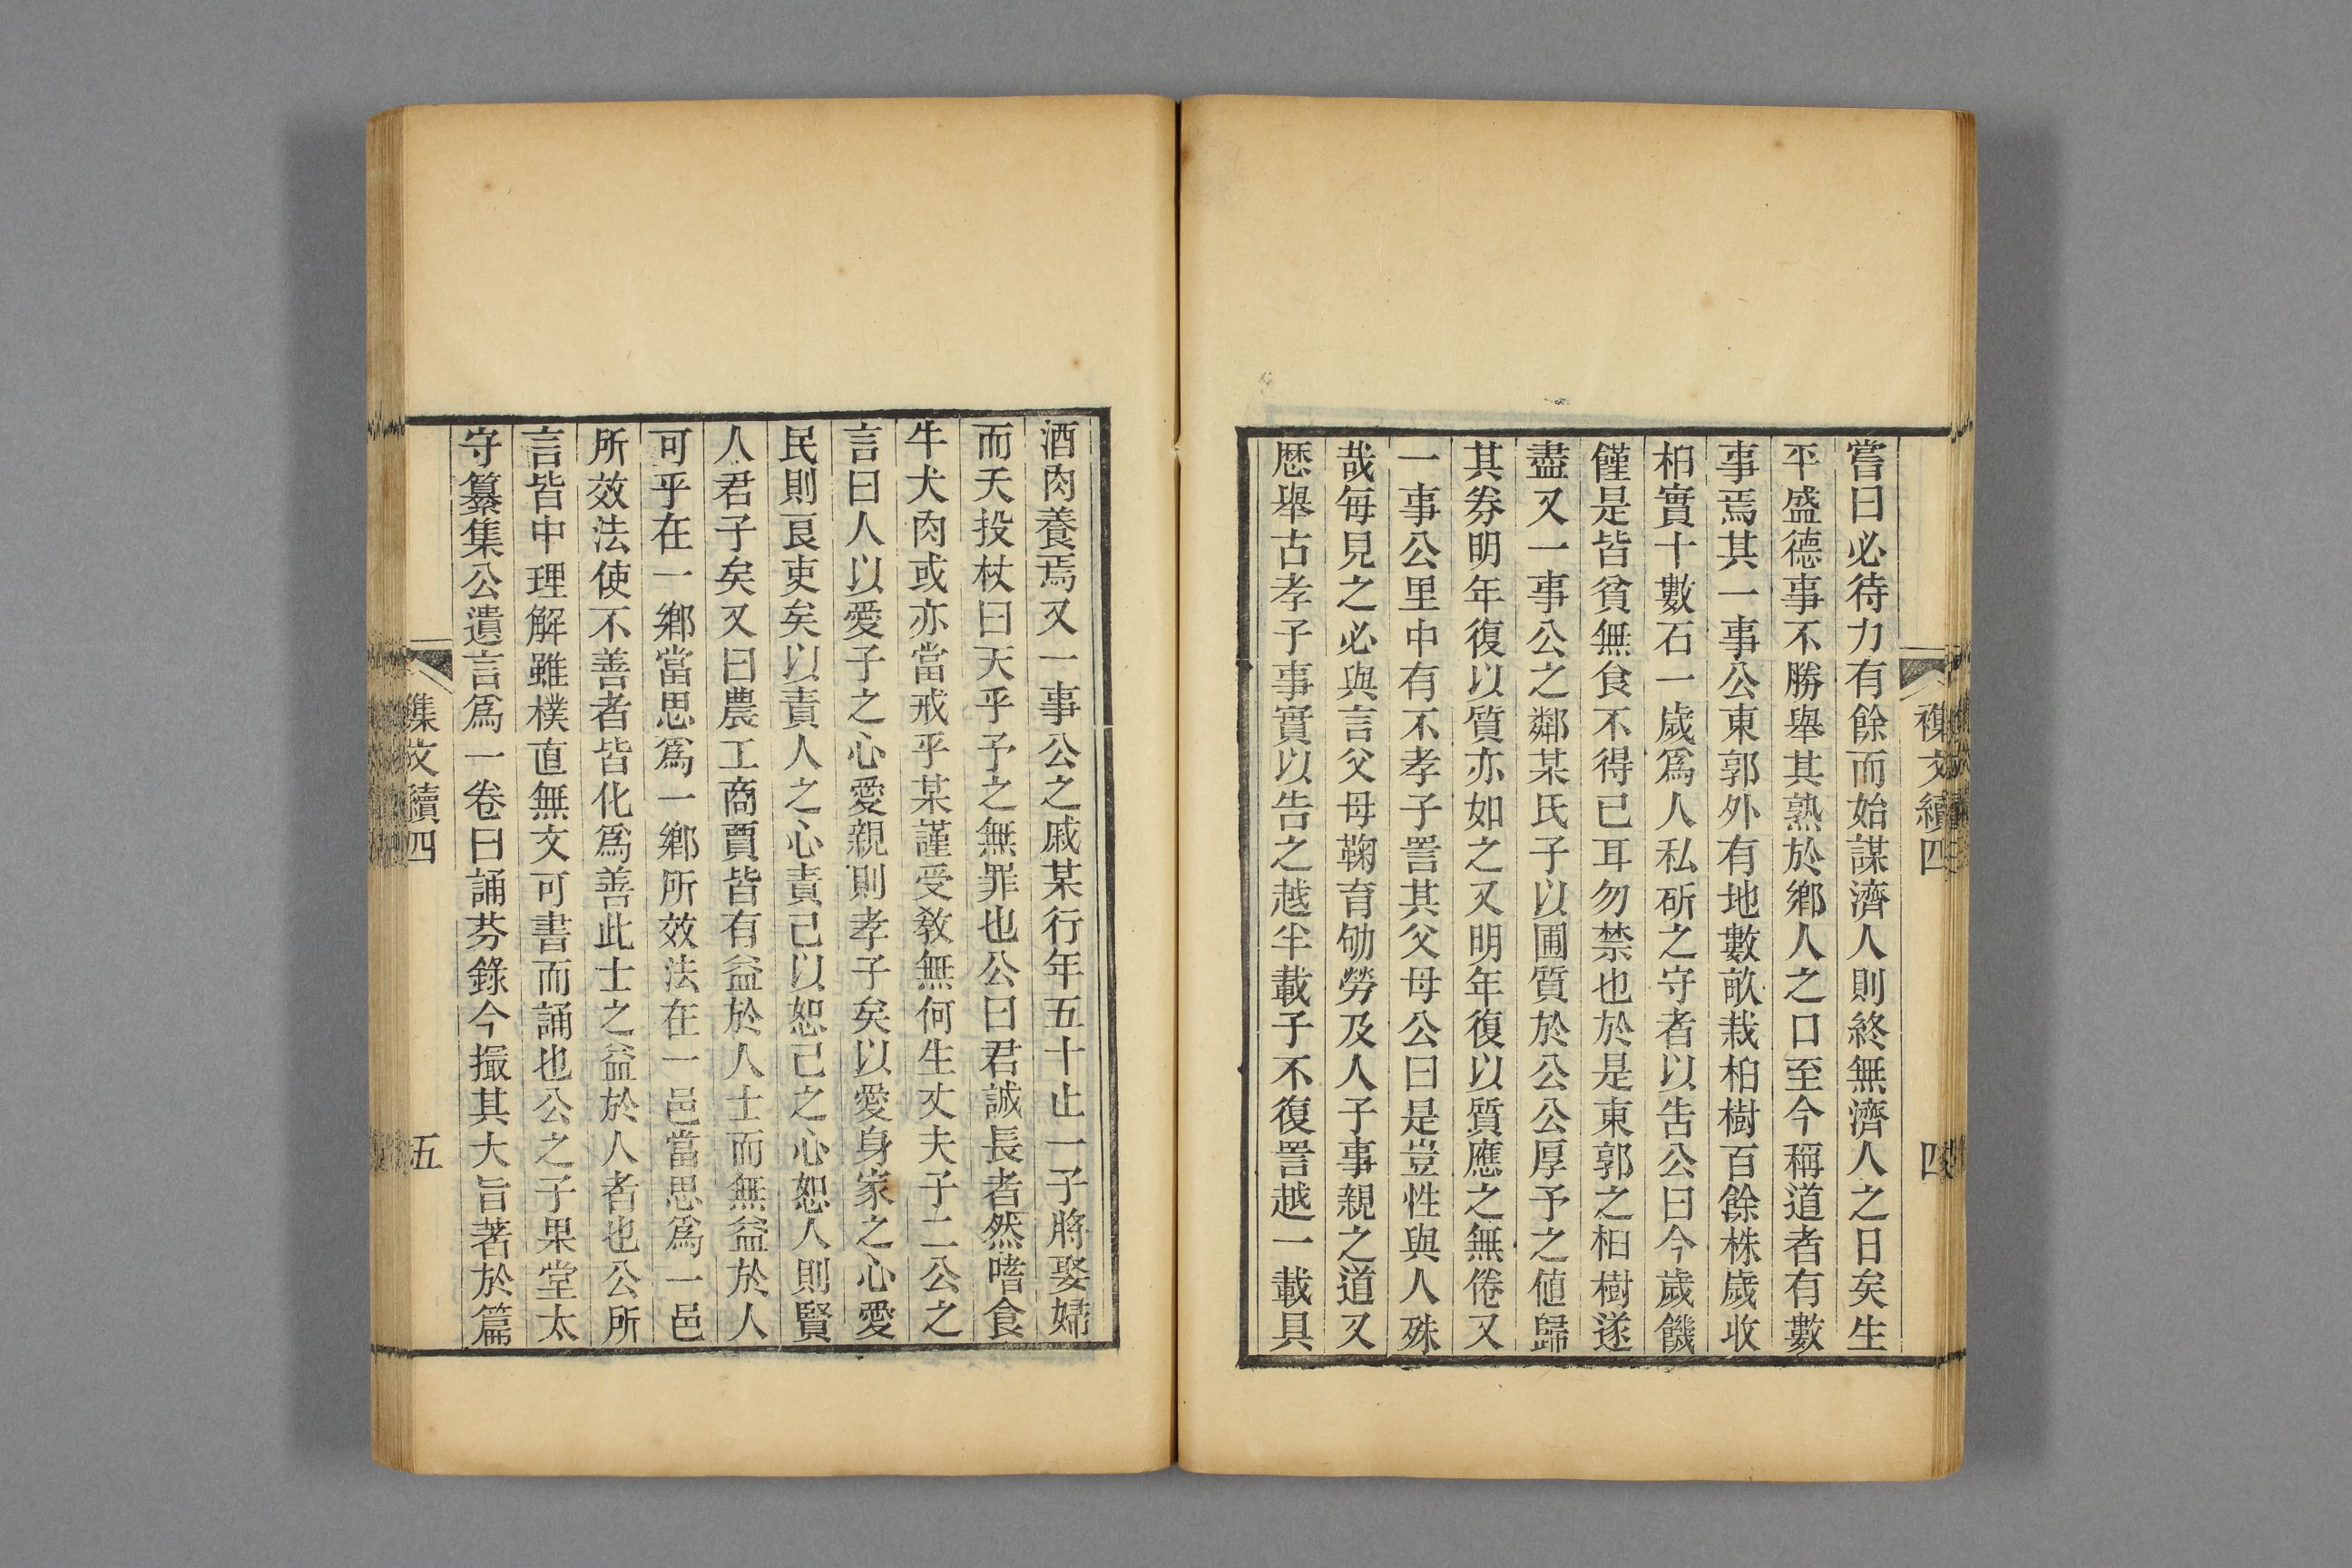 嘗曰必待力有餘而始謀濟人則終無濟人之日矣生
平盛德事不勝舉其熟於鄉人之口至今稱道者有數
事焉其一事公東郭外有地數畝栽柏樹百餘株歲收
桕實十數石一歲爲人私斫之守者以告公曰今歲饑
饉是皆貧無食不得已耳勿禁也於是東郭之桕樹遂
盡又一事公之鄰某氏子以圃質於公公厚予之値歸
其券明年復以質亦如之又明年復以質應之無倦又
一事公里中有不孝子詈其父母公曰是豈性與人殊
哉每見之必與言父母鞠育劬勞及人子事親之道又
歷舉古孝子事實以告之越半載子不復詈越一載具
襍文續四
四
酒肉養焉又一事公之戚某行年五十止一子將娶婦
而夭投杖曰天乎予之無罪也公曰君誠長者然嗜食
牛犬肉或亦當戒乎某謹受敎無何生丈夫子二公之
言曰人以愛子之心愛親則孝子矣以愛身家之心愛
民則良吏矣以責人之心責己以恕己之心恕人則賢
人君子矣又曰農工商賈皆有益於人士而無益於人
可乎在一鄉當思爲一鄉所效法在一邑當思爲一邑
所效法使不善者皆化爲善此士之益於人者也公所
言皆中理解雖樸直無文可書而誦也公之子果堂太
守纂集公遺言爲一卷曰誦芬錄今撮其大旨著於篇
集文續四
五